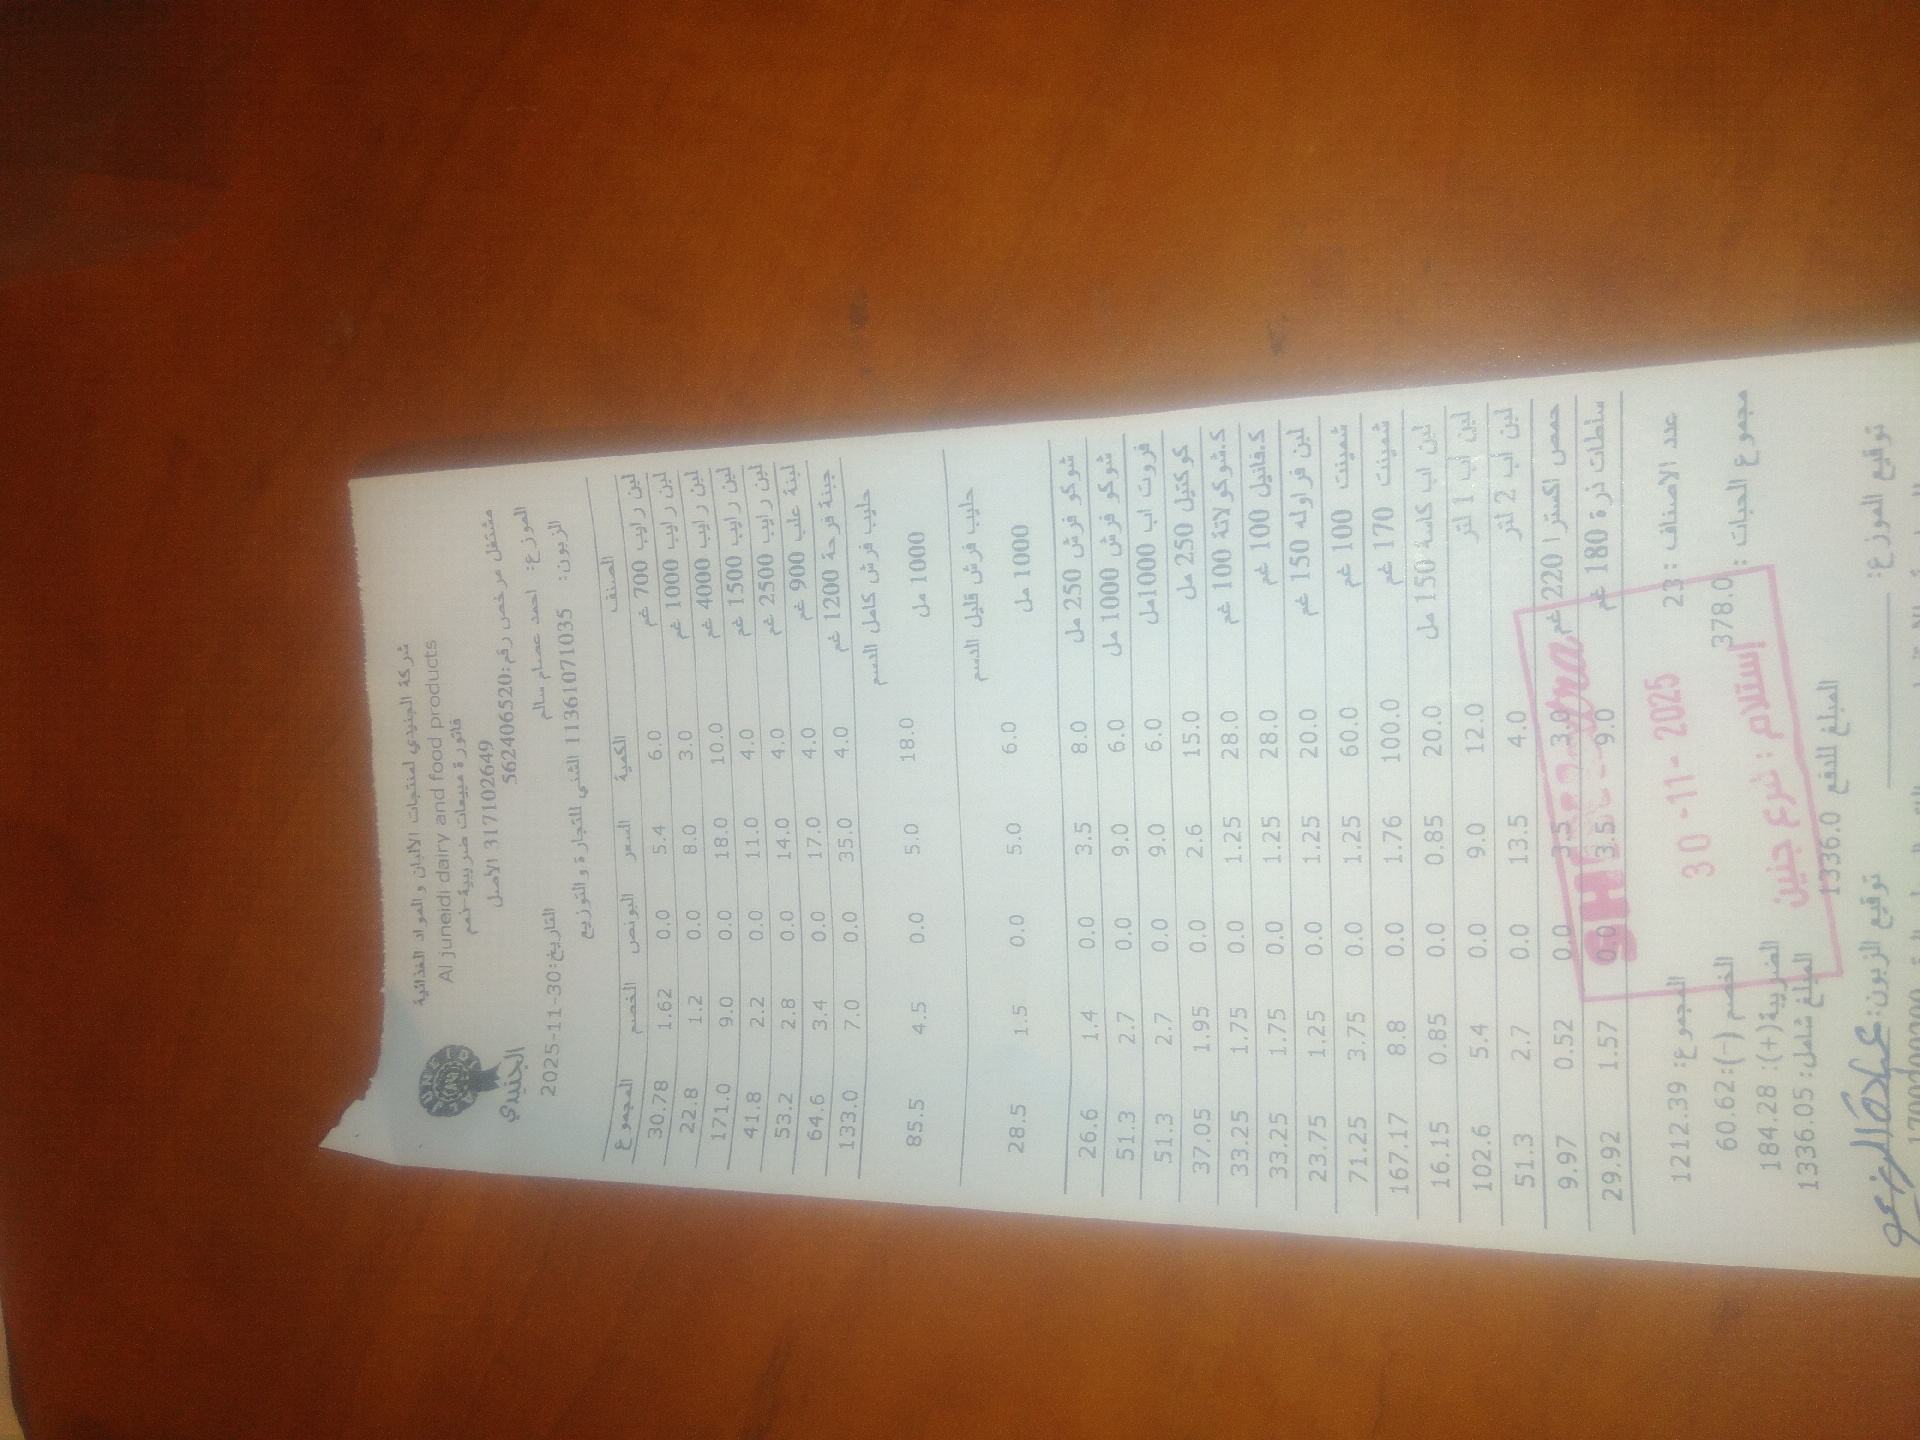 شركة الجنيدي لمنتجات الالبان و المواد الغذائية
Al juneidi dairy and food products
فاتورة مبيعات ضريبية-ذمم
3171102649 الاصل
مشتغل مرخص رقم:562406520
الجنيدي
الموزع: احمد عصام سالم
التاريخ:30-11-2025
الزبون: 11361071035 الشني للتجارة و التوزيع
الصنف الكمية السعر البونص الخصم المجموع
لبن رايب 700 غم 6.0 5.4 0.0 1.62 30.78
لبن رايب 1000 غم 3.0 8.0 0.0 1.2 22.8
لبن رايب 4000 غم 10.0 18.0 0.0 9.0 171.0
لبن رايب 1500 غم 4.0 11.0 0.0 2.2 41.8
لبن رايب 2500 غم 4.0 14.0 0.0 2.8 53.2
لبنة علب 900 غم 4.0 17.0 0.0 3.4 64.6
جبنة فرحة 1200 غم 4.0 35.0 0.0 7.0 133.0
حليب فرش كامل الدسم
1000 مل 18.0 5.0 0.0 4.5 85.5
حليب فرش قليل الدسم
1000 مل 6.0 5.0 0.0 1.5 28.5
شوكو فرش 250 مل 8.0 3.5 0.0 1.4 26.6
شوكو فرش 1000 مل 6.0 9.0 0.0 2.7 51.3
فروت اب 1000مل 6.0 9.0 0.0 2.7 51.3
كوكتيل 250 مل 15.0 2.6 0.0 1.95 37.05
ك.شوكولاتة 100 غم 28.0 1.25 0.0 1.75 33.25
ك.فانيل 100 غم 28.0 1.25 0.0 1.75 33.25
لبن فراوله 150 غم 20.0 1.25 0.0 1.25 23.75
شمينت 100 غم 60.0 1.25 0.0 3.75 71.25
شمينت 170 غم 100.0 1.76 0.0 8.8 167.17
لبن اب كاسة 150 مل 20.0 0.85 0.0 0.85 16.15
لبن اب 1 لتر 12.0 9.0 0.0 5.4 102.6
لبن اب 2 لتر 4.0 13.5 0.0 2.7 51.3
حمص اكسترا 220 غم 3.0 3.5 0.0 0.52 9.97
سلطات ذرة 180 غم 9.0 3.5 0.0 1.57 29.92
30 -11- 2025
إستلام : فرع جنين
عدد الاصناف : 23 المجموع: 1212.39
مجموع الحبات : 378.0 الخصم (-):60.62
الضريبة(+): 184.28
المبلغ شامل: 1336.05
المبلغ للدفع 1336.0
توقيع الموزع: توقيع الزبون: